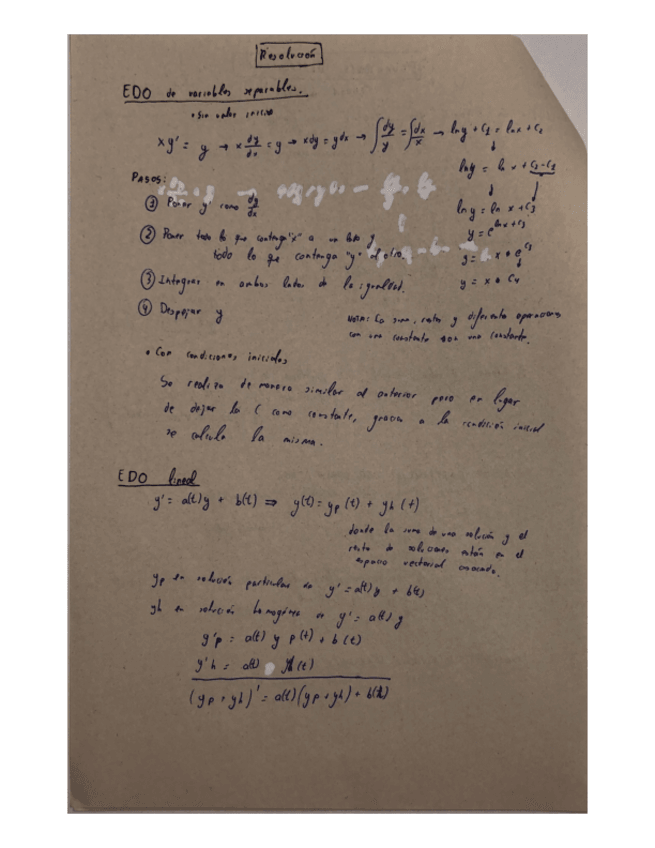 Resolución
EDO de variables separables.
• Sin valor inicial
xy' = y → x dy/dx = y → xdy = ydx → ∫ dy/y = ∫ dx/x → ln y + C₁ = ln x + C₂
ln y = ln x + C₂ - C₁
PASOS:
ln y = ln x + C₃
① Poner y' como dy/dx
y = e^(ln x + C₃)
② Poner todo lo que contenga "x" a un lado y
todo lo que contenga "y" al otro.
y = x • e^C₃
③ Integrar en ambos lados de la igualdad.
y = x • C₄
④ Despejar y
NOTA: La suma, resta y diferente operaciones
con una constante son una constante.
• Con condiciones iniciales
Se realiza de manera similar al anterior pero en lugar
de dejar la C como constante, gracias a la condición inicial
se calcula la misma.
EDO lineal
y' = a(t)y + b(t) ⇒ y(t) = yp(t) + yh(t)
donde la suma de una solución y el
resto de soluciones están en el
espacio vectorial
yp es solución particular de y' = a(t)y + b(t)
yh es solución homogénea de y' = a(t)y
y'p = a(t) y p(t) + b(t)
y'h = a(t) yh(t)
(yp + yh)' = a(t)(yp + yh) + b(t)